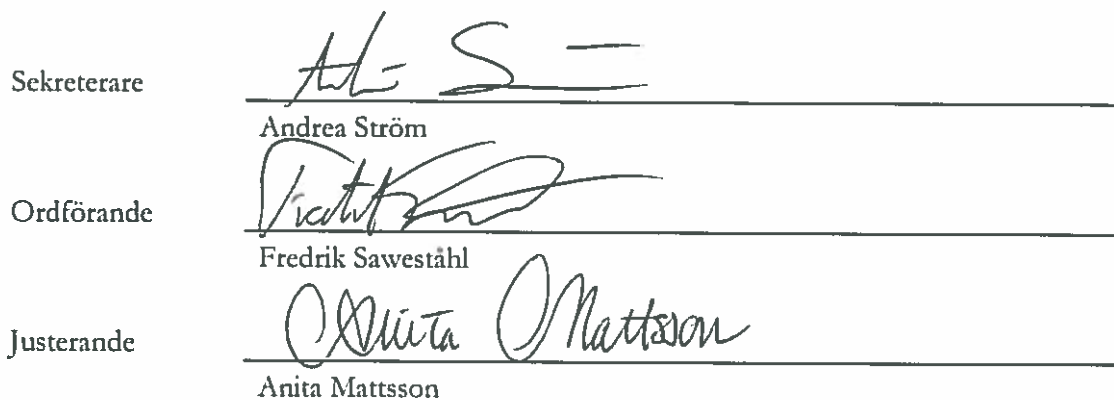 Sekreterare
Andrea Ström
Ordförande
Fredrik Saweståhl
Justerande
Anita Mattsson
Anita Mattsson